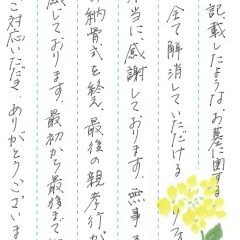 記載したような、お墓に関する
全て解消していただける
当に、感謝しております。無事
納骨式を終え、最後の親孝行が
感じております。最初から最後まで
ご対応いただき、ありがとうございま